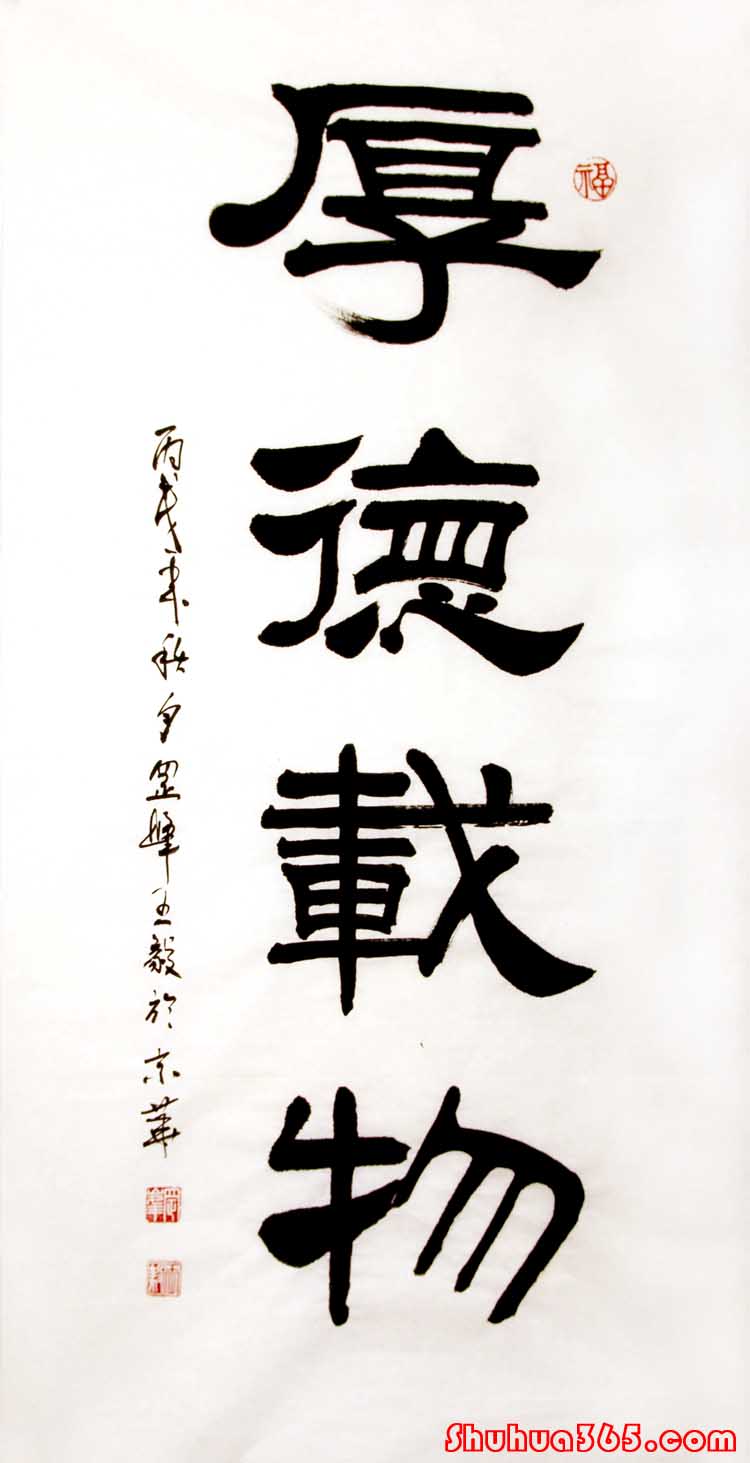 厚德載物
福
丙戌年秋月罡峰王毅於京華
Shuhua365.com